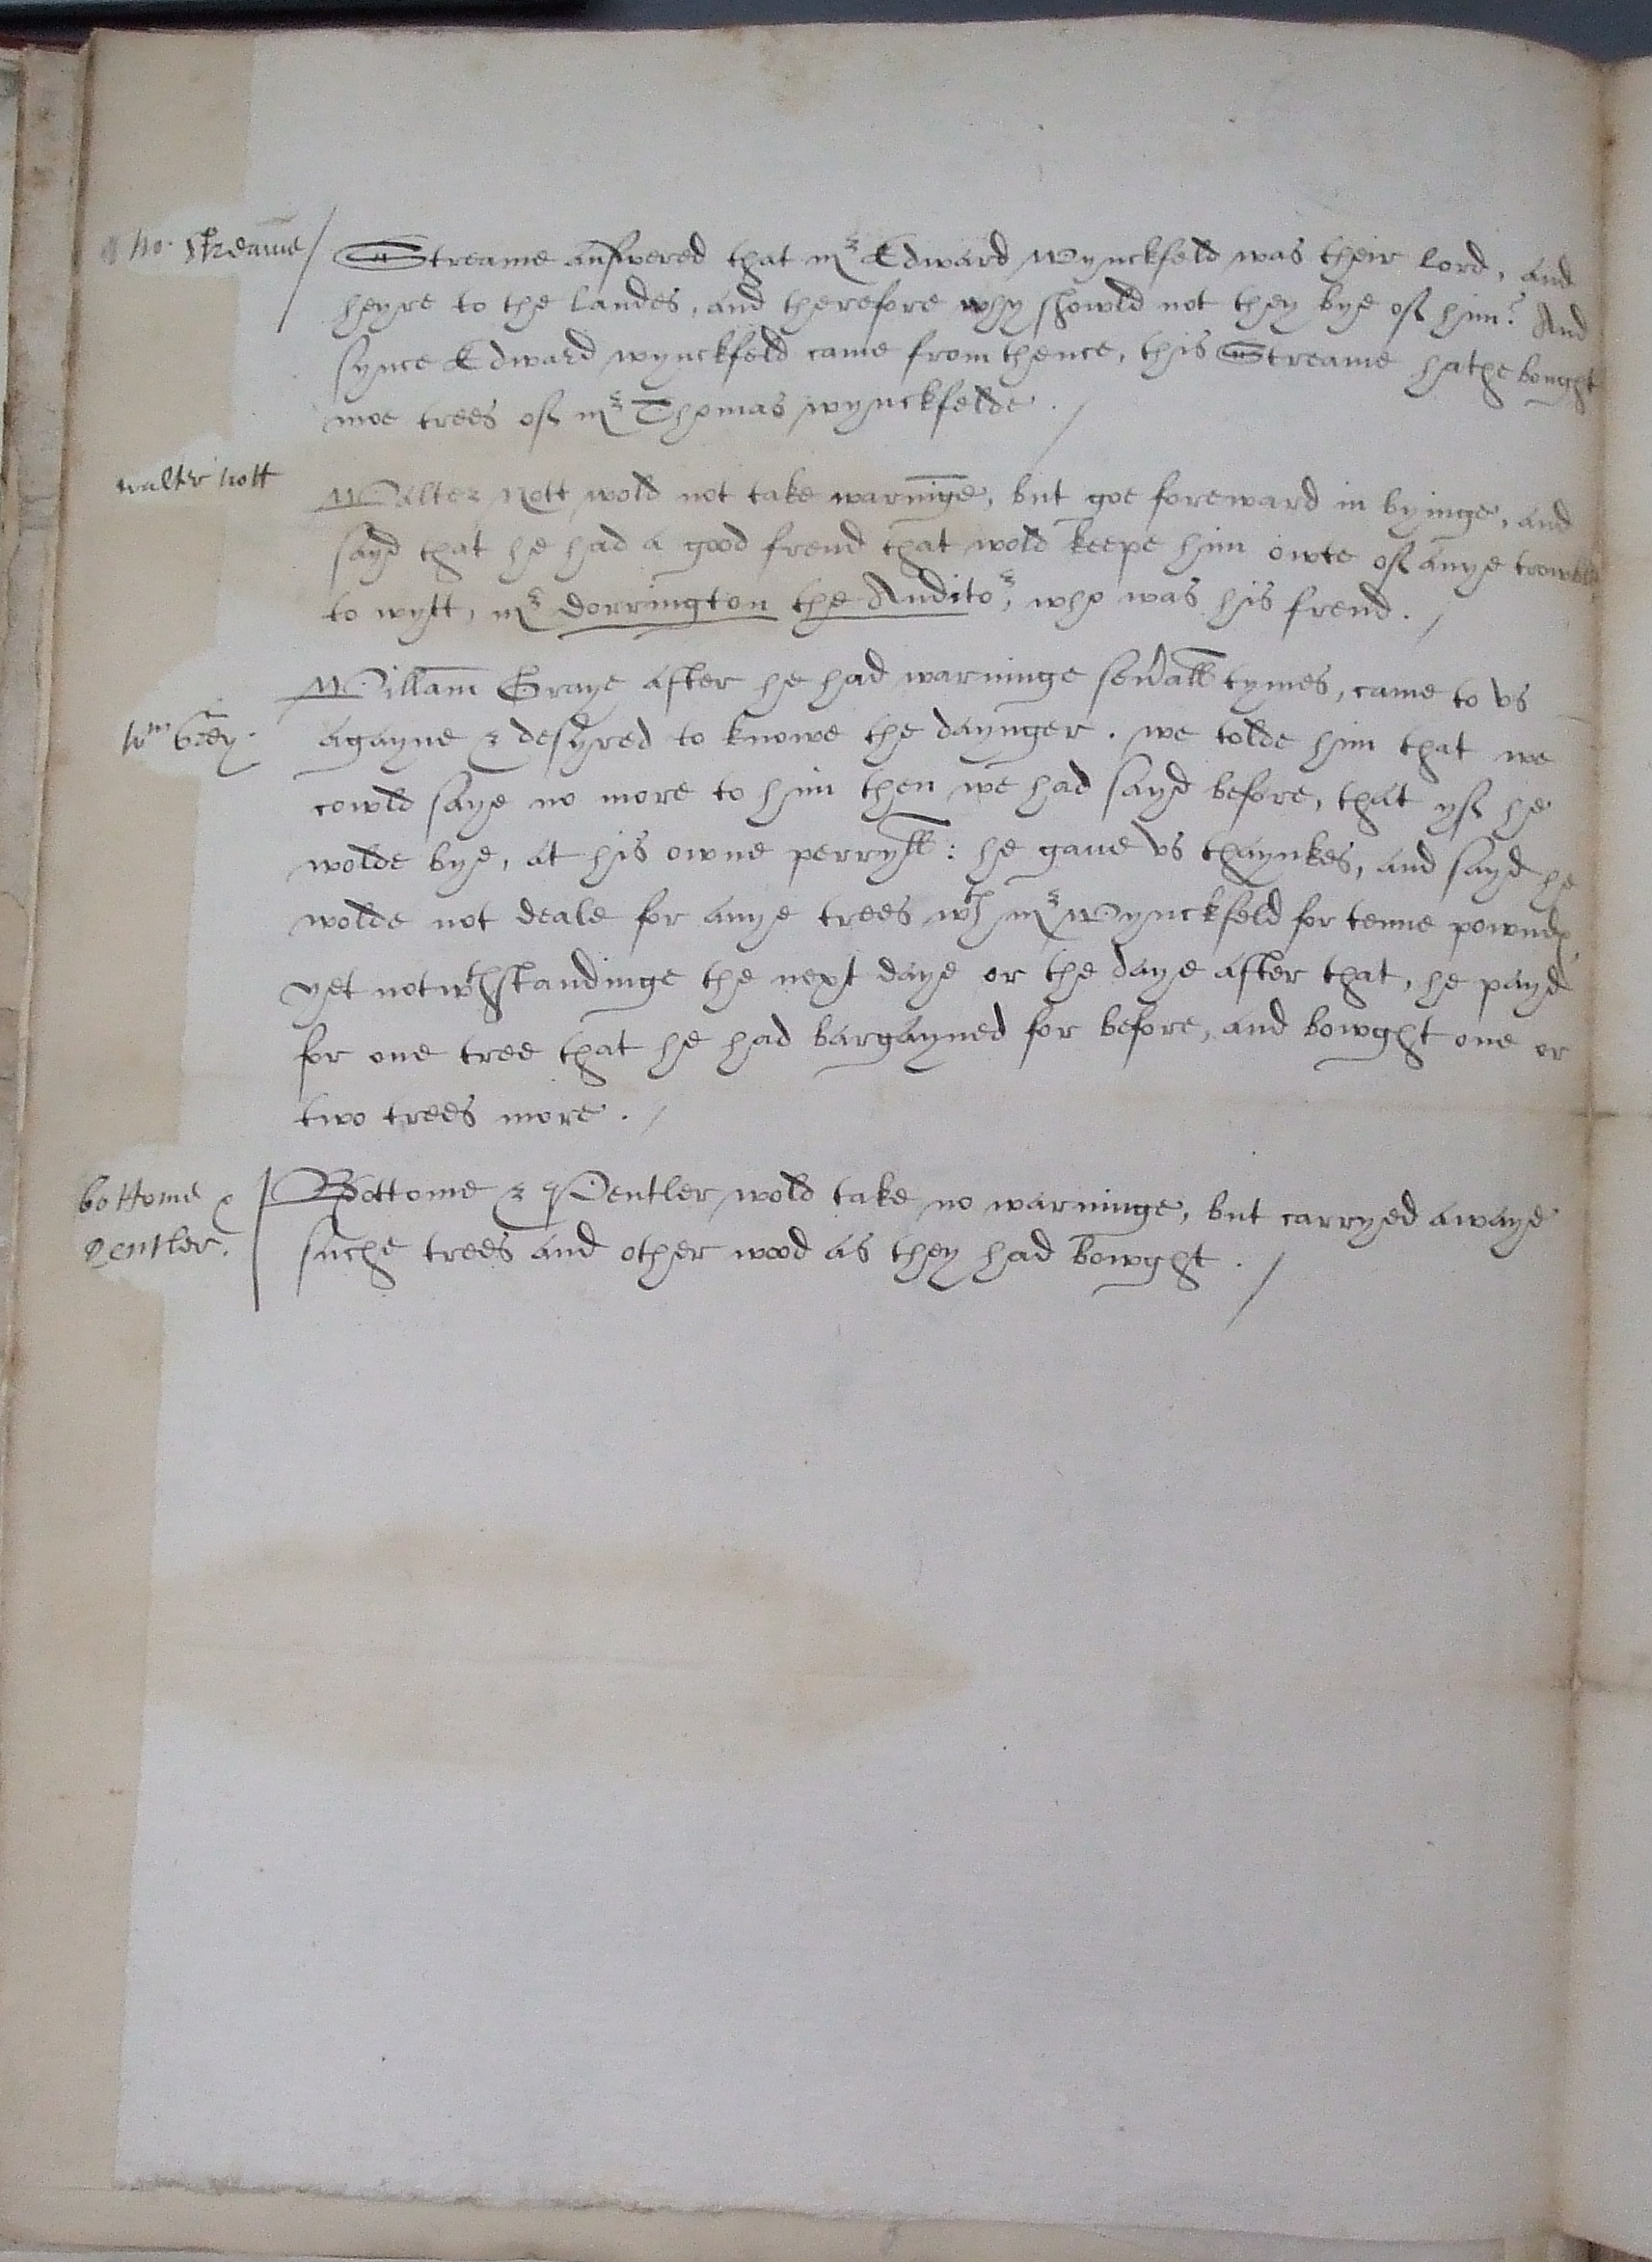 Streame
Streame answered that mr Edward Wynckfeld was their lord, and
heyre to the landes, and therefore why showld not they bye of him? And
synce Edward wynckfeld came from thence, this Streame hathe bought
moe trees of mr Thomas wynckfelde ./
walter nott
Walter Nott wold not take warninge, but goe foreward in byinge, and
sayd that he had a good frend that wold keepe him owte of anye
to wytt, mr Dorrington the Auditor, who was his frend ./
Willam Graye after he had warninge seuerall tymes, came to vs
Wm Grey.
agayne & desyred to knowe the daynger. we tolde him that we
cowld saye no more to him then we had sayd before, that yf he
wolde bye, at his owne perryll: he gaue vs thaynkes, and sayd he
wolde not deale for anye trees wth mr Wynckfeld for tenne pownds,
yet notwthstandinge the next daye or the daye after that, he payd
for one tree that he had bargayned for before, and bowght one or
two trees more ./
bottome &
Pentler.
Bottome & Pentler wold take no warninge, but carryed awaye
suche trees and other wood as they had bowght ./